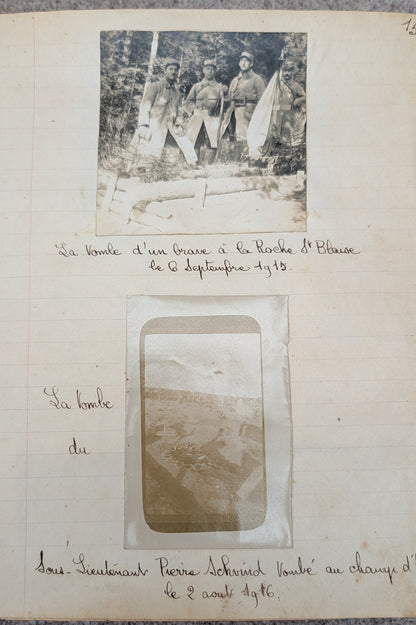 La Tombe d'un brave à la Roche St Blaise
le 6 Septembre 1915.
La Tombe
du
Sous-Lieutenant Pierre Schwind Tombé au champ d'
le 2 aout 1916.